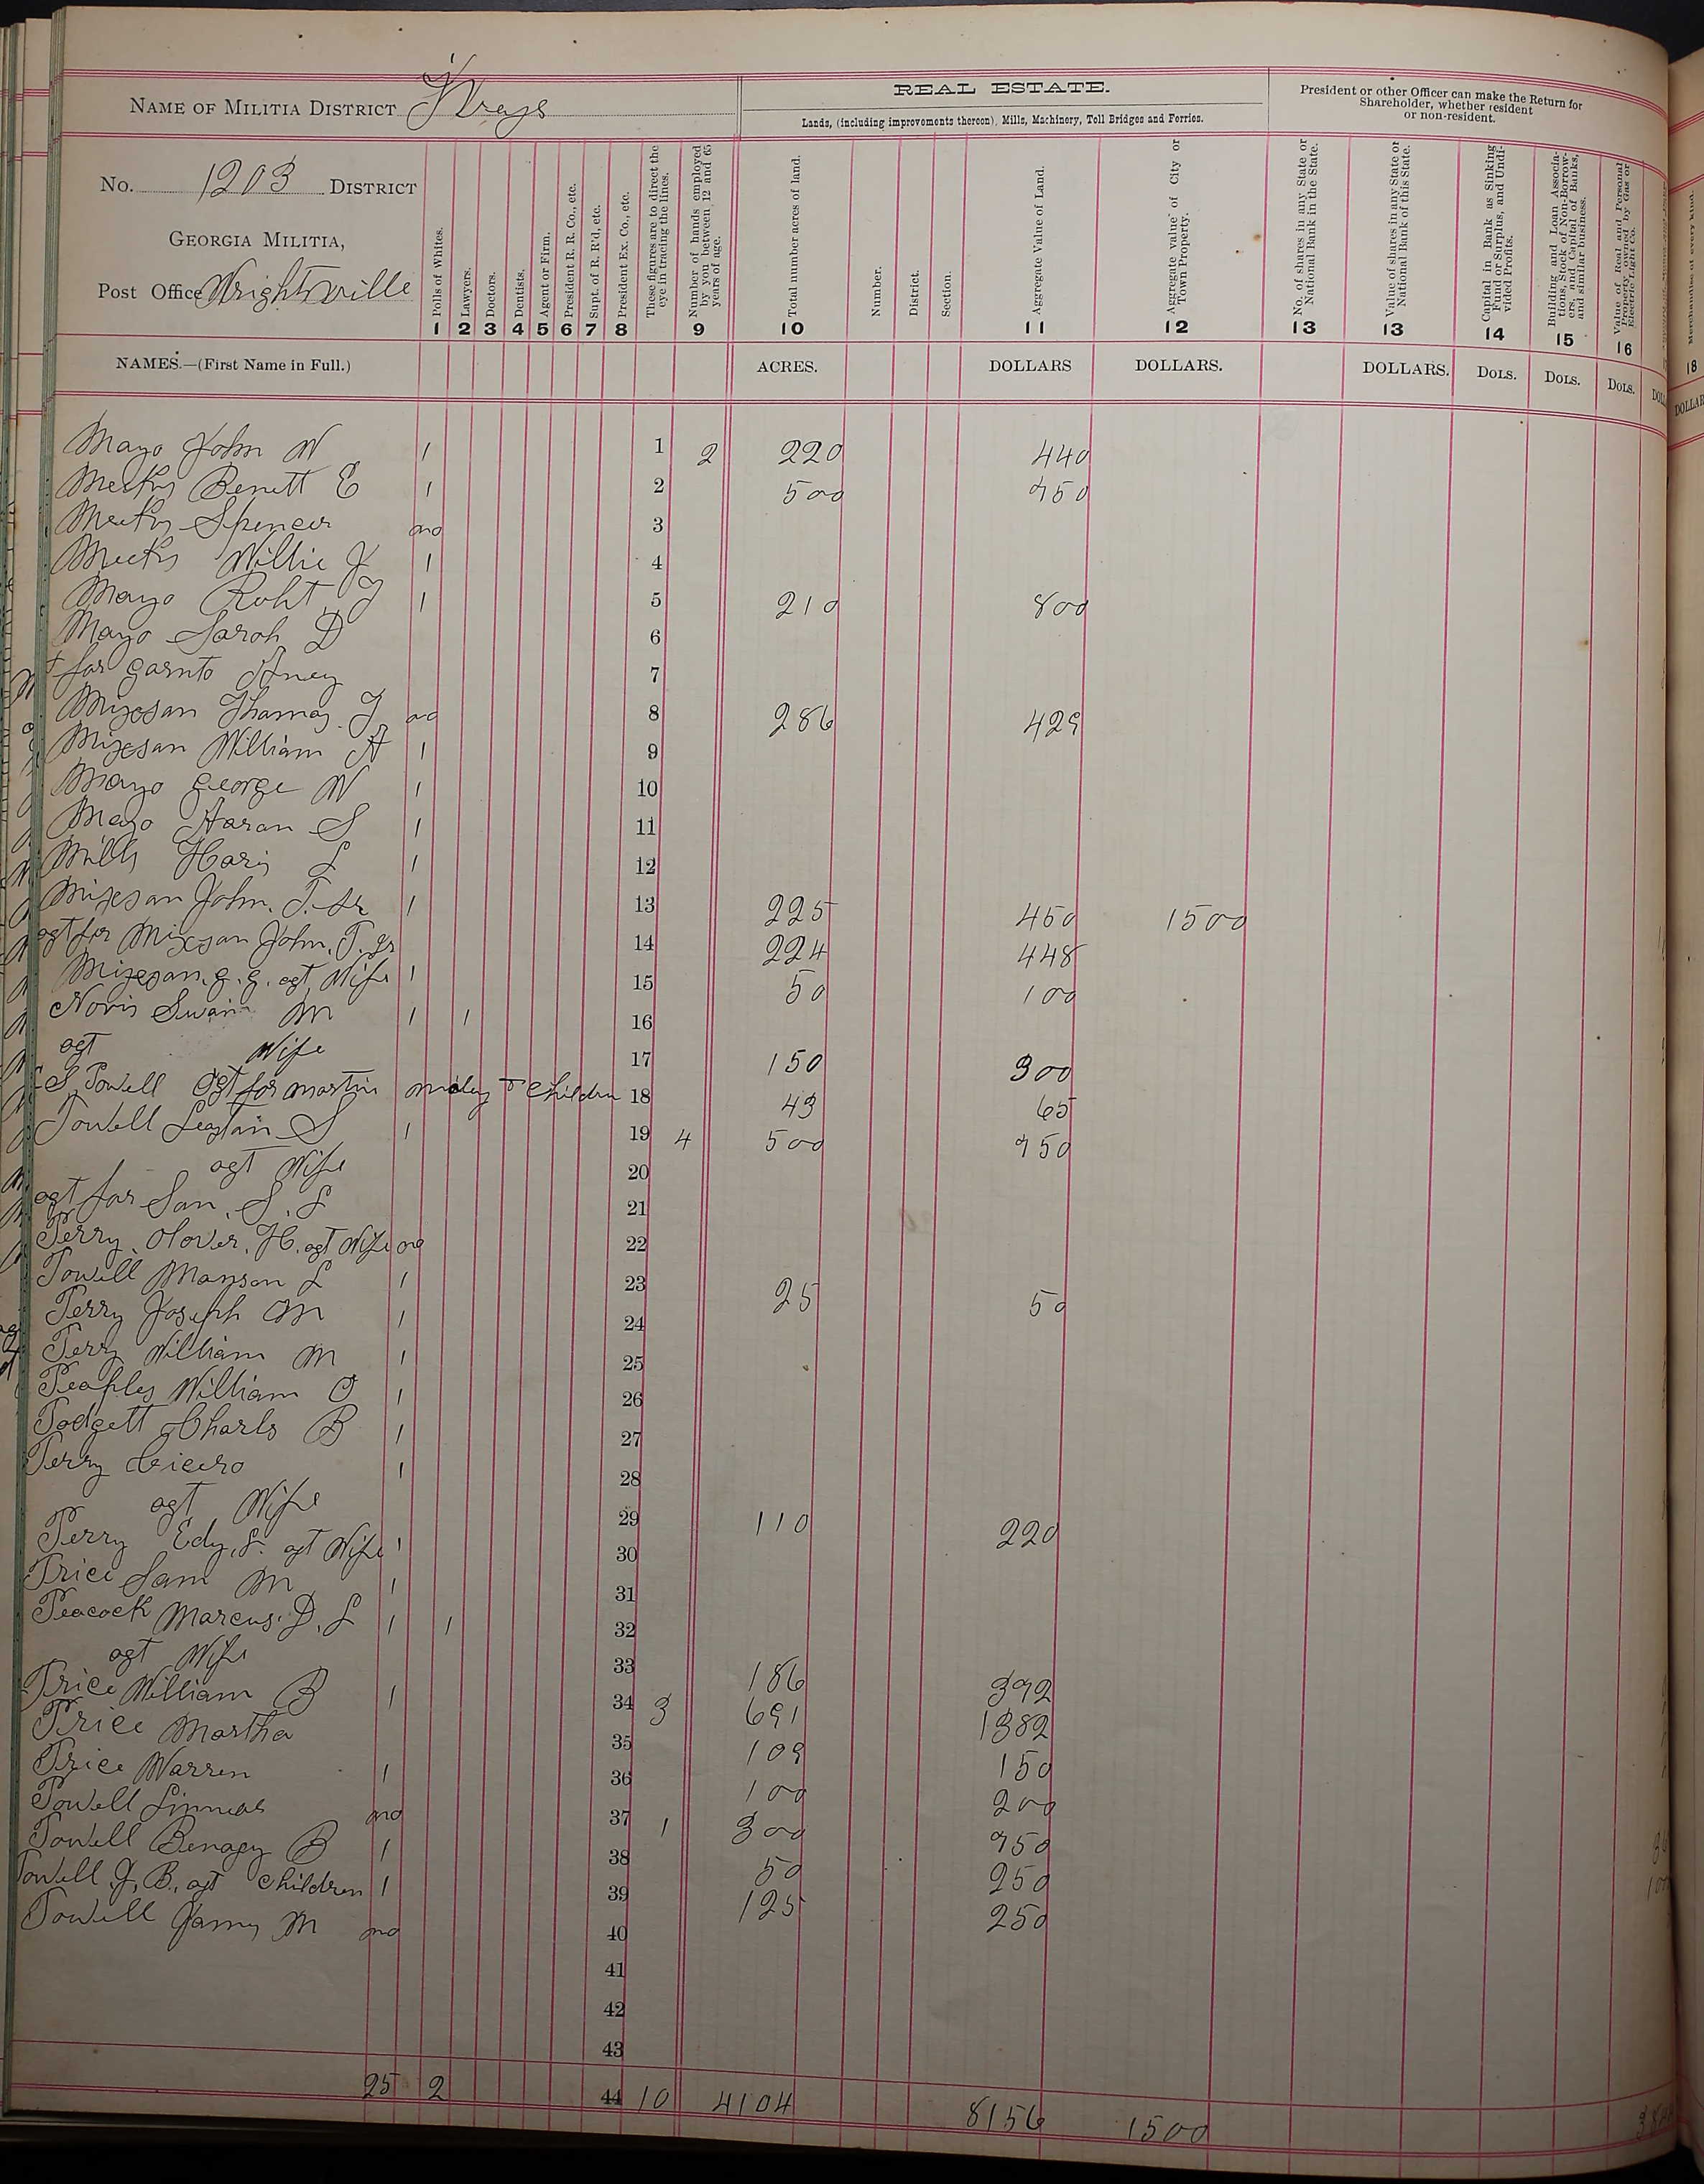 NAME OF MILITIA DISTRICT
REAL ESTATE.
Lands, (including improvements thereon), Mills, Machinery, Toll Bridges and Ferries.
President or other Officer can make the Return for Shareholder, whether resident or non-resident.
No. 1203 DISTRICT
GEORGIA MILITIA,
Post Office Wrightsville
Polls of Whites. 1
Lawyers. 2
Doctors. 3
Dentists. 4
Agent or Firm. 5
President R. R. Co., etc. 6
Supt. of R. R'd, etc. 7
President Ex. Co., etc. 8
These figures are to direct the eye in tracing the lines.
Number of hands employed by you between 12 and 65 years of age. 9
Total number acres of land. 10
Number.
District.
Section.
Aggregate Value of Land. 11
Aggregate value of City or Town Property. 12
No. of shares in any State or National Bank in the State. 13
Value of shares in any State or National Bank of this State. 13
Capital in Bank as Sinking Fund or Surplus, and Undivided Profits. 14
Building and Loan Associations, Stock of Non-Borrowers, and Capital of Banks, and similar business. 15
Value of Real and Personal Property owned by Gas or Electric Light Co. 16
Merchandise of every kind. 18
NAMES.—(First Name in Full.) ACRES. DOLLARS DOLLARS. DOLLARS. DOLS. DOLS. DOLS.
Mayo John W 1 1 2 220 440
Meeks Benett E 1 2 500 950
Meeks Spencer no 3
Meeks Willie J 1 4
Mayo Robt J 1 5 210 800
Mayo Sarah D 6
for Garnto 7
Mixson Thomas J no 8 286 429
Mixson William A 1 9
Mayo George W 1 10
Mayo Aaron S 1 11
Mills Haris L 1 12
Mixson John. T. Sr 1 13 225 450 1500
agt for Mixson John. T. Jr 14 224 448
Mixson. G. G. agt, Wife 1 15 50 100
Noris Swain M 1 1 16
agt Wife 17 150 300
S Powell Agt for Martin & Children 18 43 65
Powell S 1 19 4 500 950
agt Wife 20
agt for Son. S. L 21
Perry. Olover. H. agt Wife no 22
Powell Manson L 1 23 25 50
Perry Joseph M 1 24
Perry William M 1 25
Peaples William O 1 26
Padgett Charls B 1 27
Perry Cicero 1 28
agt Wife 29 110 220
Perry Edy. S. agt Wife 1 30
Price Sam M 1 31
Peacock Marcus. D. L 1 1 32
agt Wife 33 186 392
Price William B 1 34 3 691 1382
Price Martha 35 109 150
Price Warren 1 36 100 200
Powell no 37 1 300 950
Powell B 1 38 50 250
Powell J. B., agt Children 1 39 125 250
Powell M no 40
41
42
43
25 2 44 10 4104 8156 1500